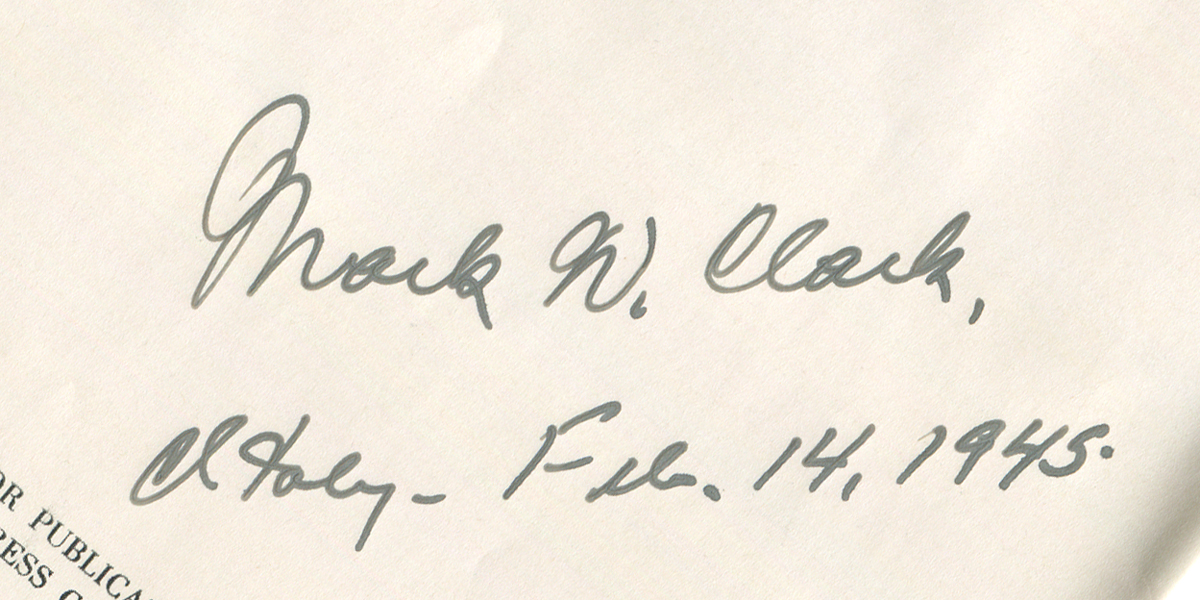 Mark W. Clark,
Italy - Feb. 14, 1945.
OR PUBLICA
RESS C